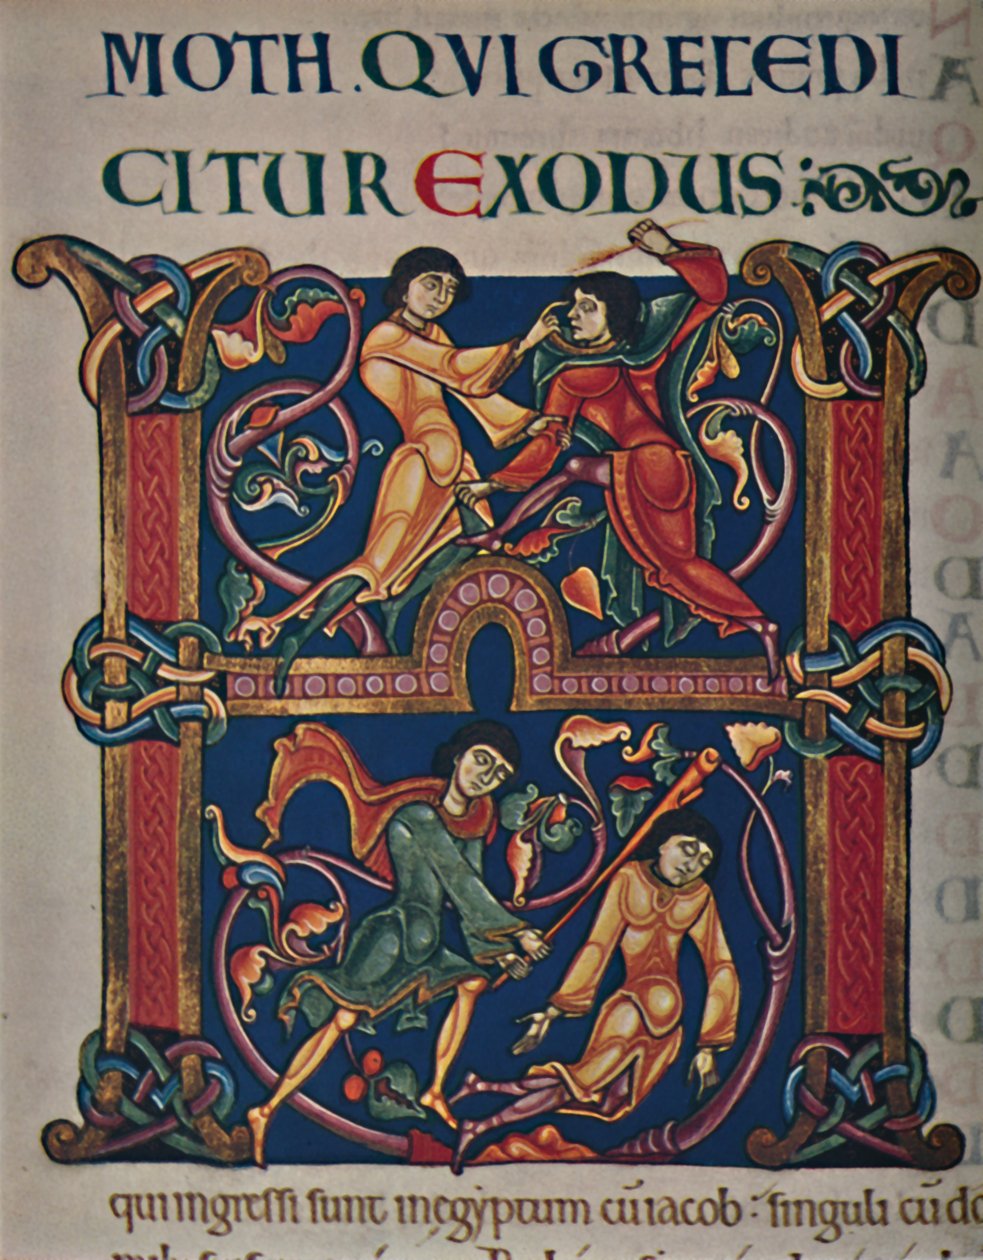 MOTH. QVI GRECE DI
CITUR EXODUS:
H
qui ingressi sunt in egyptum cū iacob : singuli cū do